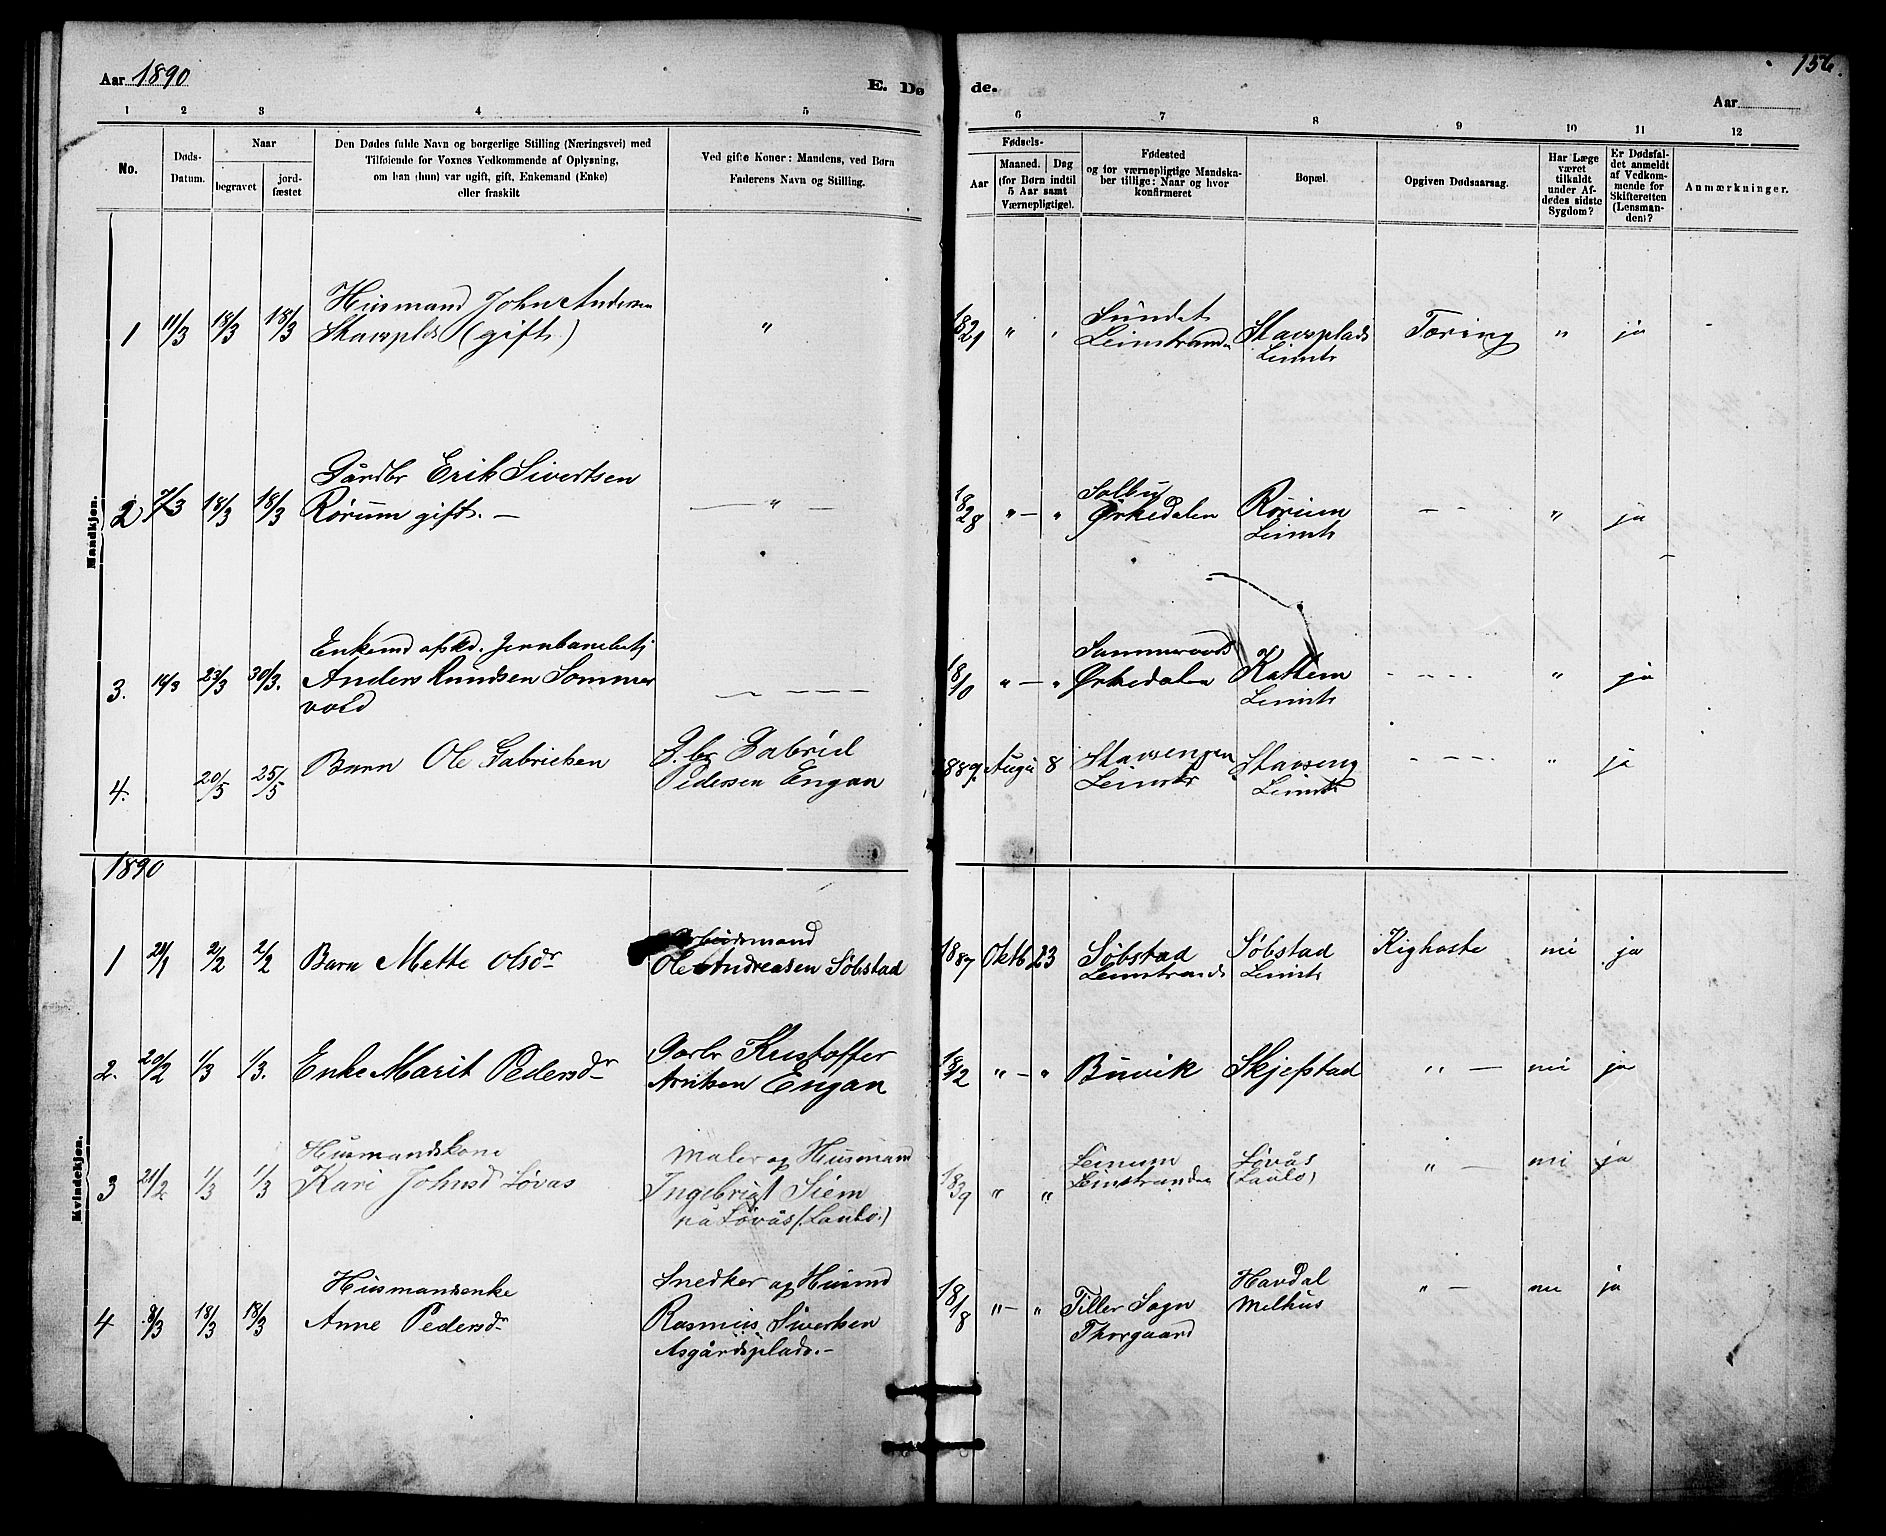 Aar 1890
E. Dø
de.
156.
Aar
1 2 3 4 5 6 7 8 9 10 11 12
No.
Døds-
Datum.
Naar
begravet
jord-
fæstet
Den Dødes fulde Navn og borgerlige Stilling (Næringsvei) med
Tilføiende for Voxnes Vedkommende af Oplysning,
om han (hun) var ugift, gift, Enkemand (Enke)
eller fraskilt
Ved gifte Koner: Mandens, ved Børn
Faderens Navn og Stilling.
Fødsels-
Aar
Maaned.
Dag
(for Børn indtil
5 Aar samt
Værnepligtige).
Fødested
og for værnepligtige Mandska-
ber tillige: Naar og hvor
konfirmeret
Bopæl.
Opgiven Dødsaarsag.
Har Læge
været
tilkaldt
under Af-
dødes sidste
Sygdom?
Er Dødsfal-
det anmeldt
af Vedkom-
mende for
Skifteretten
(Lensman-
den)?
Anmærkninger.
Mandkjøn.
Husmand John Andersen
1 11/3 18/3 18/3 Stavsplds (gift.) " 1829 " " Sundet Stavsplads Tæring " ja
Leinstranden Leinstr
Gårdbr Erik Sivertsen
2 7/3 18/3 18/3 Rørum gift. — — " — 1828 " — " Solbu Rørum — — " ja
Ørkedalen Leinstr
Enkemd afskd. Jernbanebetj
3. 14/3 23/3 30/3. Anders Knudsen Sommer 1810 " — " Ørkedalen Kattem — — — " ja
vold Leinstr
4. 20/5 25/5 Barn Ole Gabrielsen G. br Gabriel 1889. Augu 8 Stavsengen Stavseng — — — " ja
Pedersen Engan Leinstr Leinstr
1890
Kvindekjøn.
Arbeidsmand
1 2/2 2/2 Barn Mette Olsdr Ole Andreasen Søbstad 1887 Oktb 23 Søbstad Søbstad Kighoste nei ja
Leinstrands Leinstr
2. 20/2 1/3 1/3. Enke Marit Pedersdr Garbr Kristoffer 1812 " — " Buvik Skjefstad " — nei ja
Arntsen Engan
Husmandskone Maler og Husmand
3 21/2 1/3 1/3 Kari Johnsd Løvås Ingebrigt Siem 1839 " " Leinum Løvås " — nei ja
på Løvås (Saulo.) Leinstranden (Saulo)
Husmandsenke Snedker og Husmd
4 8/3 18/3 18/3 Anne Pedersdr Rasmus Sivertsen 1818 " — " Tiller Sogn Havdal " — nei ja
Asgårdsplads. — Thorgaard Melhus